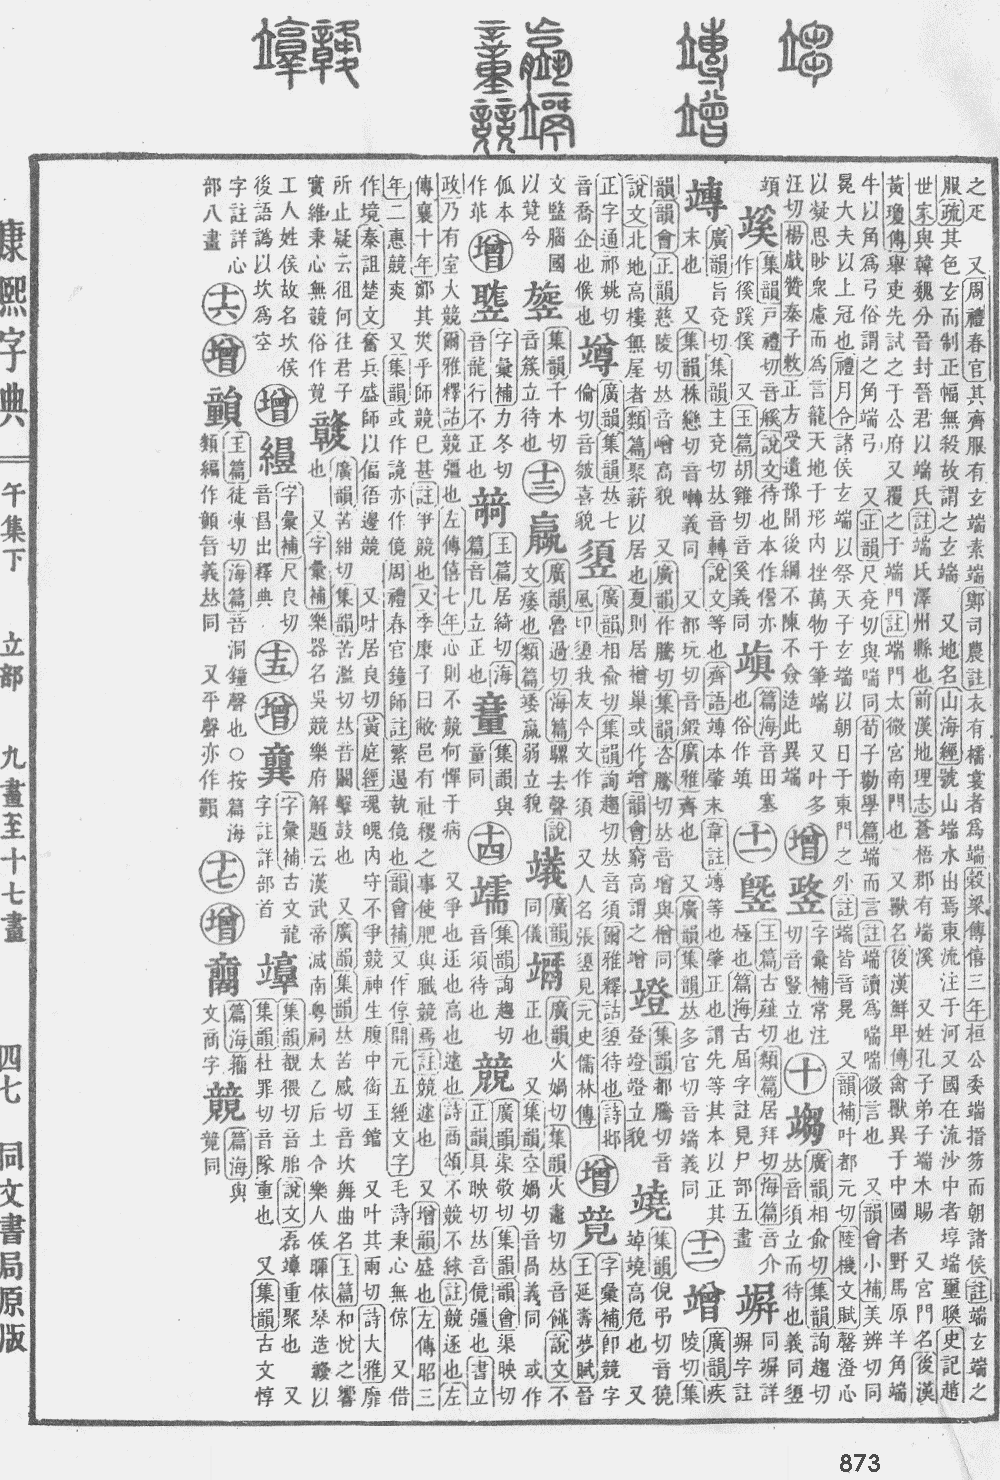 之疋　又周禮春官其齊服有玄端素端鄭司農註衣有襦裳者爲端穀梁傳僖三年桓公委端搢笏而朝諸侯註端玄端之
服疏其色玄而制正幅無殺故謂之玄端　又地名山海經號山端水出焉東流注于河又國在流沙中者埻端璽㬇史記趙
世家與韓魏分晉封晉君以端氏註端氏澤州縣也前漢地理志蒼梧郡有端溪　又姓孔子弟子端木賜　又宮門名後漢
黃瓊傳舉吏先試之于公府又覆之于端門註端門太微宮南門也　又獸名後漢鮮卑傳禽獸異于中國者野馬原羊角端
牛以角爲弓俗謂之角端弓　又正韻尺兗切與喘同荀子勸學篇端而言註端讀爲喘喘微言也　又韻會小補美辨切同
冕大夫以上冠也禮月令諸侯玄端以祭天子玄端以朝日于東門之外註端皆音冕　又韻補叶都元切陸機文賦罄澄心
以凝思眇衆慮而爲言籠天地于形內挫萬物于筆端　又叶多
汪切楊戲贊秦子敕正方受遺豫聞後綱不陳不僉造此異端
增　字彙補常注切音豎立也　十　廣韻相俞切集韻詢趨切𠀤音須立而待也義同䇓
頊
集韻戸禮切音徯說文待也本作徯亦作徯蹊傒　又玉篇胡雞切音奚義同
篇海音田塞也俗作填
十一　玉篇古薤切類篇居拜切海篇音介極也篇海古屆字註見尸部五畫
同墀詳墀字註
竱　廣韻旨兗切集韻主兗切𠀤音轉說文等也齊語竱本肇末章註竱等也肇正也謂先等其本以正其末也　又集韻株戀切音囀義同　又都玩切音鍛廣雅齊也　又廣韻集韻𠀤多官切音端義同
十二　增　廣韻疾陵切集韻韻會正韻慈陵切𠀤音嶒高貌　又廣韻作騰切集韻咨騰切𠀤音增與橧同
說文北地高樓無屋者類篇聚薪以居也夏則居橧巢或作增韻會窮高謂之竲
集韻都騰切音登竳竳立貌
集韻倪弔切音獟竨高危也　又
正字通祁姚切音喬企也偯也
竴　廣韻集韻𠀤七倫切音皴喜貌
廣韻相俞切集韻詢趨切𠀤音須爾雅釋詁䇓待也詩邶風卭䇓我友今文作須　又人名張䇓見元史儒林傳
增　竸　字彙補卽競字王延壽夢賦晉文盬腦國以竸兮
集韻千木切音簇立待也
十三　臝　廣韻魯過切海篇騾去聲說文痿也類篇矮臝弱立貌
䉝　廣韻同儀正也
廣韻火媧切集韻火鼃切𠀤音䧯說文不正也　又集韻空媧切音咼義同　或作㐻本作㽿
增　字彙補力冬切音龍行不正也
玉篇居綺切海篇音几立正也
集韻與童同
十四　集韻詢趨切音須待也
競　廣韻渠敬切集韻韻會渠映切正韻具映切𠀤音傹彊也書立政乃有室大競爾雅釋詁競彊也左傳僖七年心則不競何憚于病　又爭也迋也高也遽也詩商頌不競不絿註競逐也左傳襄十年鄭其災乎師競已甚註爭競也又季康子曰敝邑有社稷之事使肥與職競焉註競遽也　又增韻盛也左傳昭三年二惠競爽　又集韻或作誩亦作傹周禮春官鐘師註繁遏執傹也韻會補又作倞開元五經文字毛詩秉心無倞　又借作境秦詛楚文奮兵盛師以偪㑛邊競　又叶居良切黃庭經魂魄內守不爭競神生腹中銜玉鐺　又叶其兩切詩大雅靡所止疑云徂何往君子實維秉心無競俗作竸
竷　廣韻苦紺切集韻苦濫切𠀤音闞擊鼓也　又廣韻集韻𠀤苦感切音坎舞曲名玉篇和悅之響也　又字彙補樂器名吳競樂府解題云漢武帝滅南粤祠太乙后土令樂人侯暉依琴造竷以工人姓侯故名坎侯後語譌以坎爲空字註詳心部八畫
增　字彙補尺良切音昌出釋典
十五　增　字彙補古文龍字註詳部首
集韻覩猥切音腲說文磊𥫔重聚也　又集韻杜罪切音隊重也　又集韻古文惇
十六　增　玉篇徒凍切海篇音洞鐘聲也○按篇海類編作顫音義𠀤同　又平聲亦作
十七　增　篇海籀文商字
篇海與競同
康熙字典　午集下　立部　九畫至十七畫　四七　同文書局原版
873